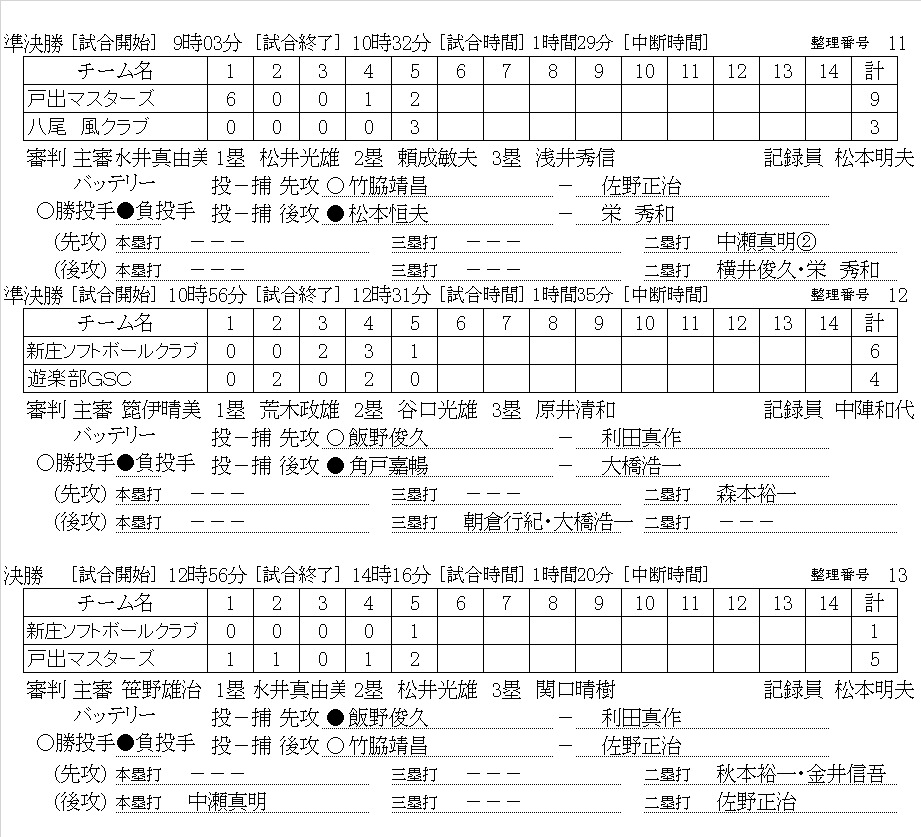 準決勝 [試合開始] 9時03分 [試合終了] 10時32分 [試合時間] 1時間29分 [中断時間] 整理番号 11
チーム名 1 2 3 4 5 6 7 8 9 10 11 12 13 14 計
戸出マスターズ 6 0 0 1 2 9
八尾 風クラブ 0 0 0 0 3 3
審判 主審 水井真由美 1塁 松井光雄 2塁 頼成敏夫 3塁 浅井秀信 記録員 松本明夫
バッテリー 投－捕 先攻 ○ 竹脇靖昌 － 佐野正治
○勝投手●負投手 投－捕 後攻 ● 松本恒夫 － 栄 秀和
(先攻) 本塁打 －－－ 三塁打 －－－ 二塁打 中瀬真明②
(後攻) 本塁打 －－－ 三塁打 －－－ 二塁打 横井俊久・栄 秀和
準決勝 [試合開始] 10時56分 [試合終了] 12時31分 [試合時間] 1時間35分 [中断時間] 整理番号 12
チーム名 1 2 3 4 5 6 7 8 9 10 11 12 13 14 計
新庄ソフトボールクラブ 0 0 2 3 1 6
遊楽部GSC 0 2 0 2 0 4
審判 主審 箆伊晴美 1塁 荒木政雄 2塁 谷口光雄 3塁 原井清和 記録員 中陣和代
バッテリー 投－捕 先攻 ○ 飯野俊久 － 利田真作
○勝投手●負投手 投－捕 後攻 ● 角戸嘉暢 － 大橋浩一
(先攻) 本塁打 －－－ 三塁打 －－－ 二塁打 森本裕一
(後攻) 本塁打 －－－ 三塁打 朝倉行紀・大橋浩一 二塁打 －－－
決勝 [試合開始] 12時56分 [試合終了] 14時16分 [試合時間] 1時間20分 [中断時間] 整理番号 13
チーム名 1 2 3 4 5 6 7 8 9 10 11 12 13 14 計
新庄ソフトボールクラブ 0 0 0 0 1 1
戸出マスターズ 1 1 0 1 2 5
審判 主審 笹野雄治 1塁 水井真由美 2塁 松井光雄 3塁 関口晴樹 記録員 松本明夫
バッテリー 投－捕 先攻 ● 飯野俊久 － 利田真作
○勝投手●負投手 投－捕 後攻 ○ 竹脇靖昌 － 佐野正治
(先攻) 本塁打 －－－ 三塁打 －－－ 二塁打 秋本裕一・金井信吾
(後攻) 本塁打 中瀬真明 三塁打 －－－ 二塁打 佐野正治